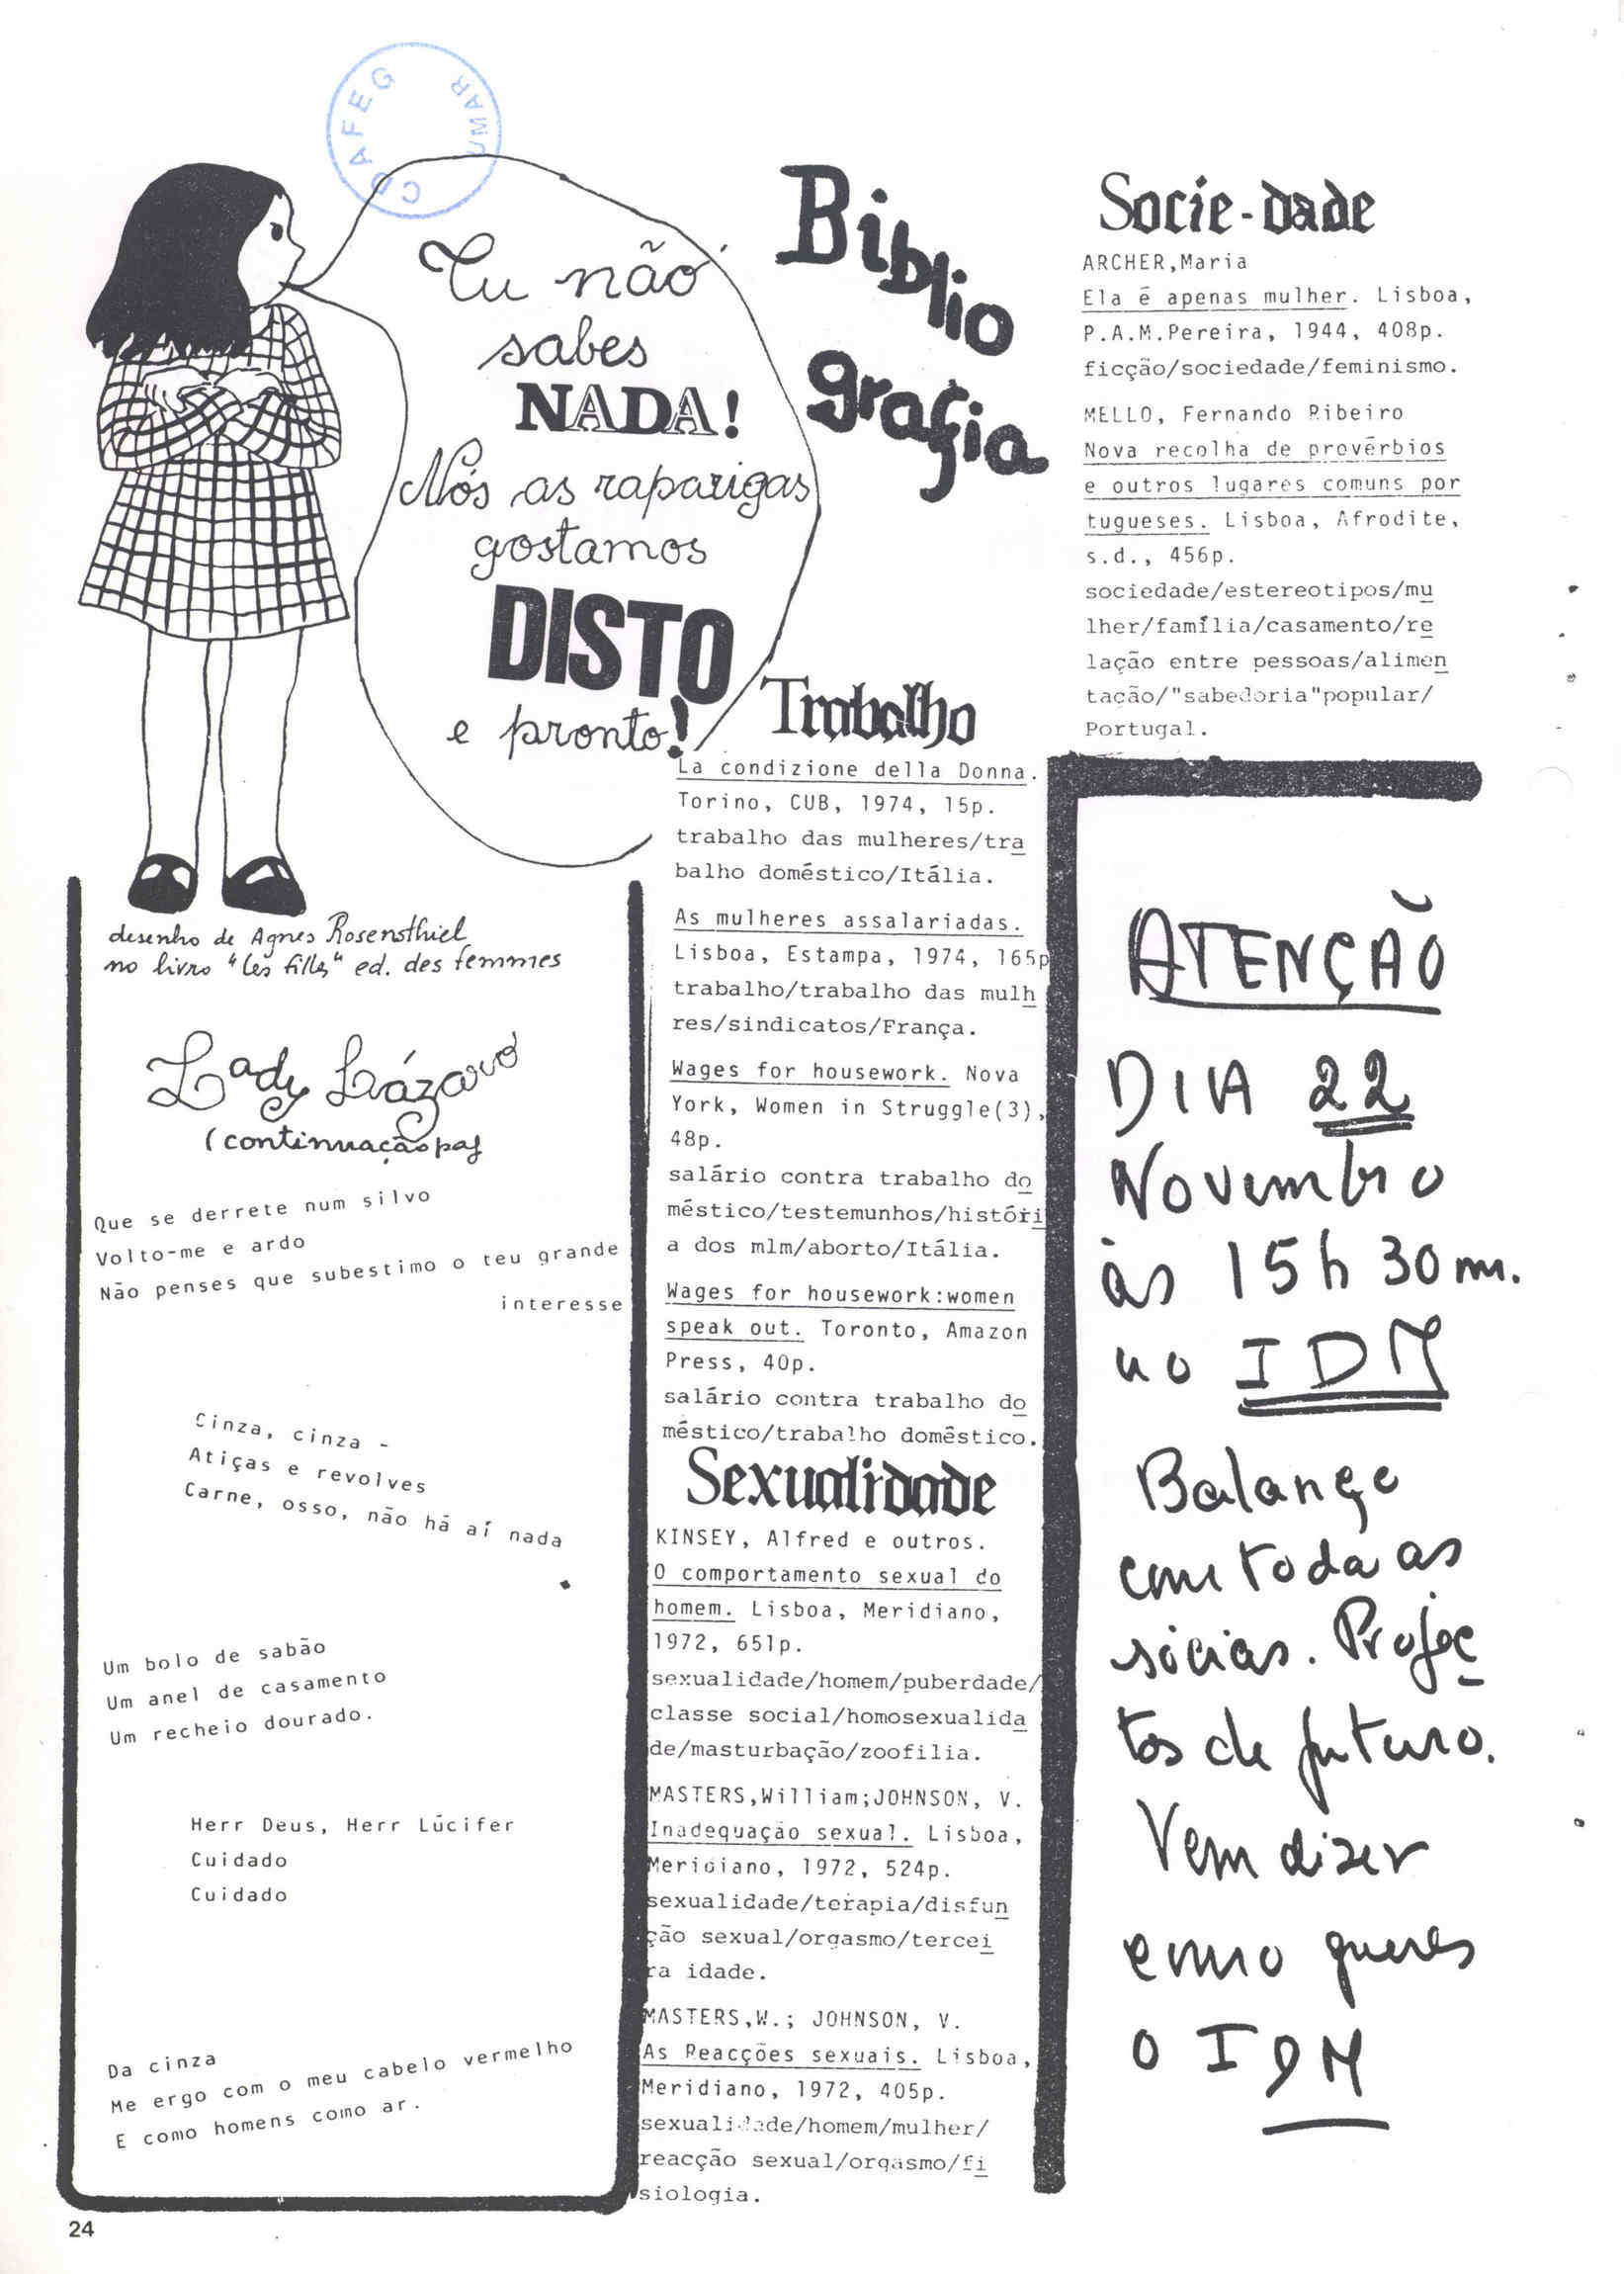 CDAFEG
UMAR
Tu não
sabes
NADA!
Nós as raparigas
gostamos
DISTO
e pronto!
desenho de Agnes Rosensthiel
no livro "les filles" ed. des femmes
Lady Lázaro
(continuação pag
Que se derrete num silvo
Volto-me e ardo
Não penses que subestimo o teu grande
interesse
Cinza, cinza -
Atiças e revolves
Carne, osso, não há aí nada
Um bolo de sabão
Um anel de casamento
Um recheio dourado.
Herr Deus, Herr Lúcifer
Cuidado
Cuidado
Da cinza
Me ergo com o meu cabelo vermelho
E como homens como ar.
24
Biblio
grafia
Trabalho
La condizione della Donna.
Torino, CUB, 1974, 15p.
trabalho das mulheres/tra
balho doméstico/Itália.
As mulheres assalariadas.
Lisboa, Estampa, 1974, 165p
trabalho/trabalho das mulh
res/sindicatos/França.
Wages for housework. Nova
York, Women in Struggle(3),
48p.
salário contra trabalho do
méstico/testemunhos/históri
a dos mlm/aborto/Itália.
Wages for housework:women
speak out. Toronto, Amazon
Press, 40p.
salário contra trabalho do
méstico/trabalho doméstico.
Sexualidade
KINSEY, Alfred e outros.
O comportamento sexual do
homem. Lisboa, Meridiano,
1972, 651p.
sexualidade/homem/puberdade/
classe social/homosexualida
de/masturbação/zoofilia.
MASTERS,William;JOHNSON, V.
Inadequação sexual. Lisboa,
Meridiano, 1972, 524p.
sexualidade/terapia/disfun
ção sexual/orgasmo/tercei
ra idade.
MASTERS,W.; JOHNSON, V.
As Reacções sexuais. Lisboa,
Meridiano, 1972, 405p.
sexualidade/homem/mulher/
reacção sexual/orgasmo/fi
siologia.
Socie-dade
ARCHER,Maria
Ela é apenas mulher. Lisboa,
P.A.M.Pereira, 1944, 408p.
ficção/sociedade/feminismo.
MELLO, Fernando Ribeiro
Nova recolha de provérbios
e outros lugares comuns por
tugueses. Lisboa, Afrodite,
s.d., 456p.
sociedade/estereotipos/mu
lher/família/casamento/re
lação entre pessoas/alimen
tação/"sabedoria"popular/
Portugal.
ATENÇÃO
DIA 22
Novembro
às 15h 30m.
no IDM
Balanço
com toda as
sócias. Projec
tos de futuro.
Vem dizer
como queres
o IDM